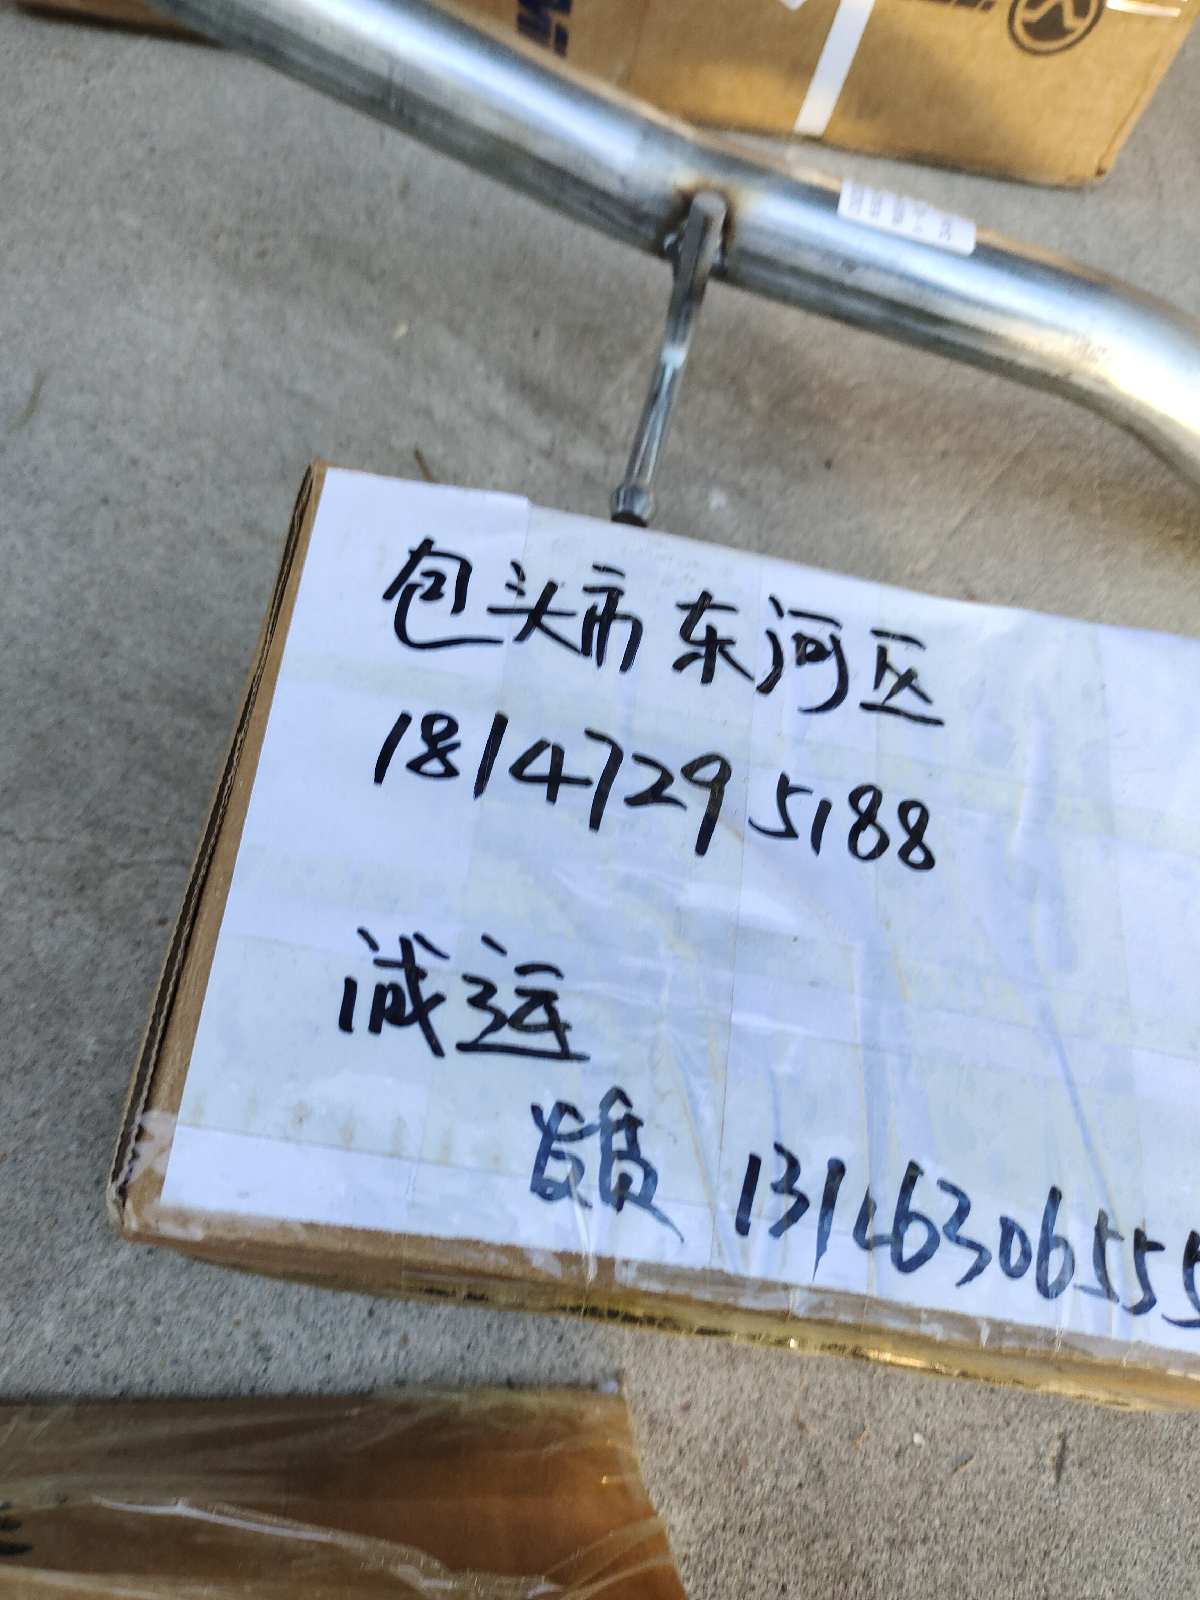 包头市东河区
18147295188
诚运
发货 13146306555